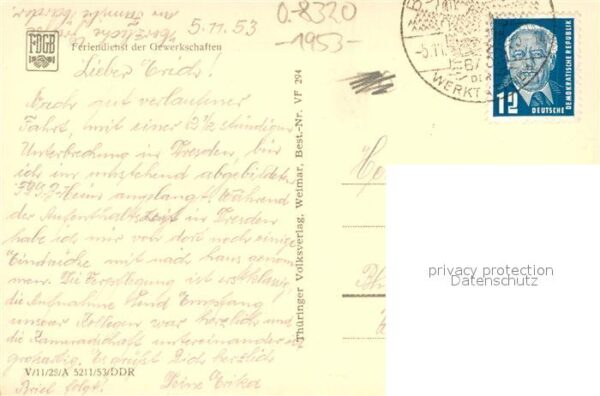 herzliche Grüße
an Familie
5.11.53
0-8320
-1953-
FDGB
Feriendienst der Gewerkschaften
Lieber Erich!
Nach gut verlaufener
Fahrt, mit einer 2½ stündigen
Unterbrechung in Dresden, bin
ich im umstehend abgebildeten
Heim angelangt. Während
der Aufenthaltszeit in Dresden
habe ich mir von dort noch einige
Eindrücke mit nach haus genom-
men. Die Verpflegung ist erstklassig,
die Aufnahme und Empfang
unserer Kollegen war herzlich und
die Kameradschaft untereinander ist
großartig. Es grüßt Dich herzlich
V/11/28/A 5211/53/DDR
Brief folgt! Deine Erika
Thüringer Volksverlag, Weimar, Best.-Nr. VF 294
-5.11.
WERKT
12
DEUTSCHE
DEMOKRATISCHE REPUBLIK
privacy protection
Datenschutz